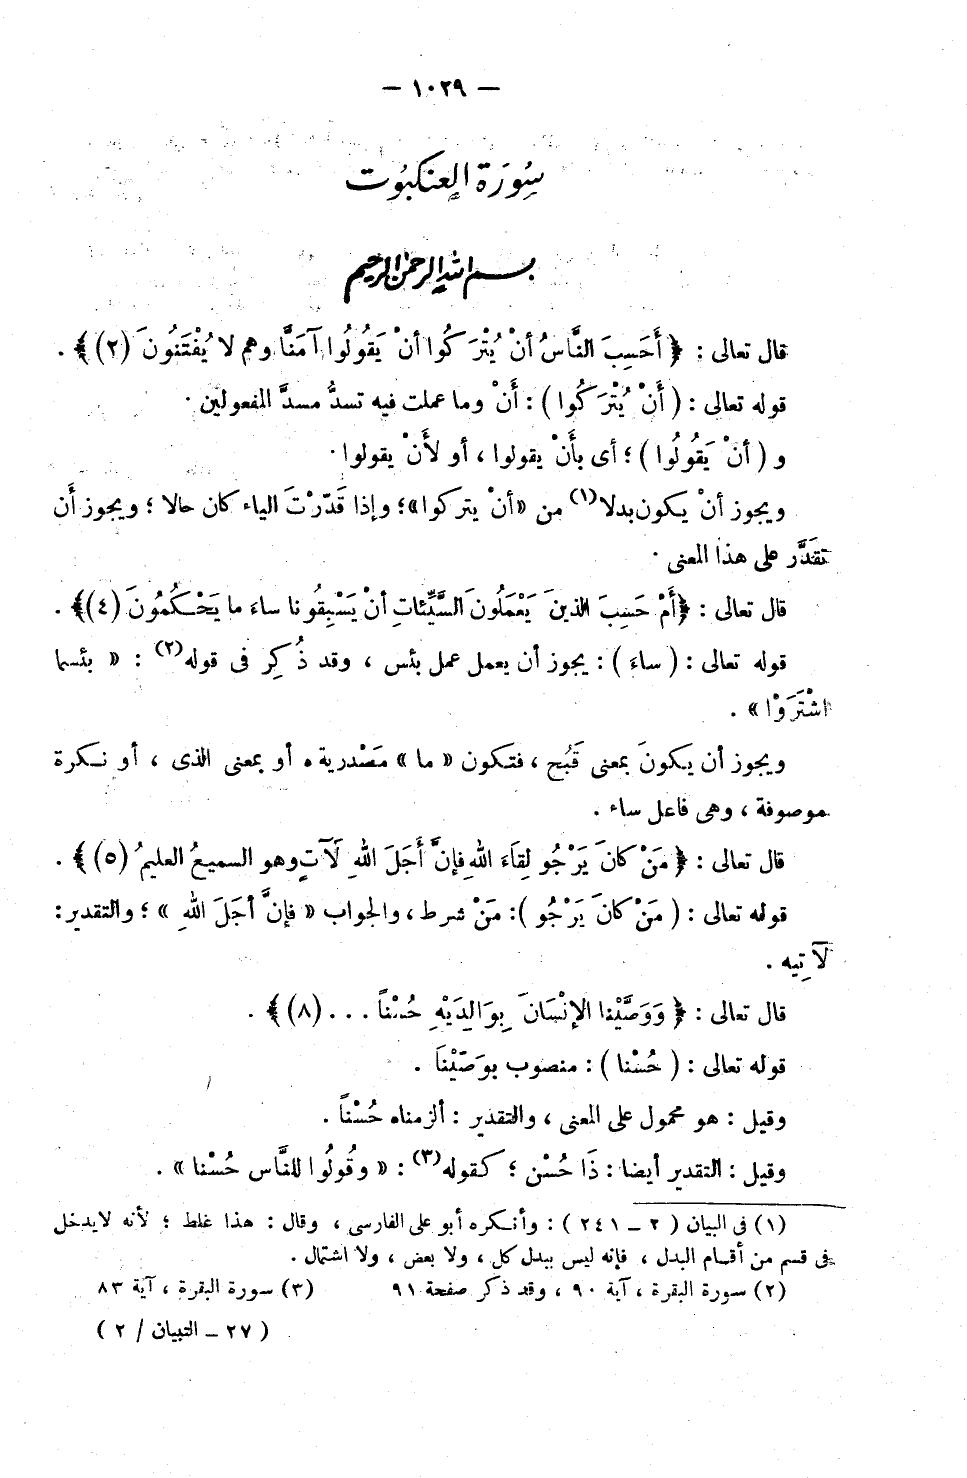 — ١٠٢٩ —
سُورَة العنكبُوت
بسم الله الرحمن الرحيم
قال تعالى : ﴿ أَحَسِبَ النَّاسُ أنْ يُتْرَكُوا أنْ يَقُولُوا آمَنَّا وهم لا يُفْتَنُونَ (٢) ﴾ .
قوله تعالى : ( أَنْ يُتْرَكُوا ) : أَنْ وما عملت فيه تسدُّ مسدَّ المفعولين .
و ( أنْ يَقُولُوا ) ؛ أى بأَنْ يقولوا ، أو لأَنْ يقولوا .
ويجوز أنْ يكون بدلا(١) من «أنْ يتركوا»؛ وإذا قَدّرْتَ الياء كان حالا ؛ ويجوز أَن
تقَدَّر على هذا المعنى .
قال تعالى : ﴿أَمْ حَسِبَ الذينَ يَعْمَلُونَ السَّيِّئاتِ أنْ يَسْبِقُونا ساءَ ما يَحْكُمُونَ (٤)﴾ .
قوله تعالى : ( ساءَ ) : يجوز أن يعمل عمل بئس ، وقد ذُكِر فى قوله(٢) : « بئسما
اشْتَرَوْا » .
ويجوز أن يكونَ بمعنى قَبُح ، فتكون « ما » مَصْدرية ، أو بمعنى الذى ، أو نكرة
موصوفة ، وهى فاعل ساء .
قال تعالى : ﴿ مَنْ كانَ يَرْجُو لِقَاءَ اللهِ فإنَّ أَجَلَ اللهِ لَآتٍ وهو السميعُ العليمُ (٥) ﴾ .
قوله تعالى : ( مَنْ كانَ يَرْجُو ): مَنْ شرط ، والجواب « فإنَّ أجَلَ اللهِ » ؛ والتقدير :
لآتيه .
قال تعالى : ﴿ وَوَصَّيْنا الإنْسَانَ بِوَالِدَيْهِ حُسْناً ... (٨) ﴾ .
قوله تعالى : ( حُسْنا ) : منصوب بوَصّيْنَا .
وقيل : هو محمول على المعنى ، والتقدير : ألزمناه حُسْناً .
وقيل : التقدير أيضا : ذَا حُسْن ؛ كقوله(٣) : « وقُولُوا للنَّاس حُسْنا » .
(١) فى البيان ( ٢ – ٢٤١ ) : وأنكره أبو على الفارسى ، وقال : هذا غلط ؛ لأنه لايدخل
فى قسم من أقسام البدل ، فإنه ليس ببدل كل ، ولا بعض ، ولا اشتمال .
(٢) سورة البقرة ، آية ٩٠ ، وقد ذكر صفحة ٩١ (٣) سورة البقرة ، آية ٨٣
( ٢٧ – التبيان / ٢ )